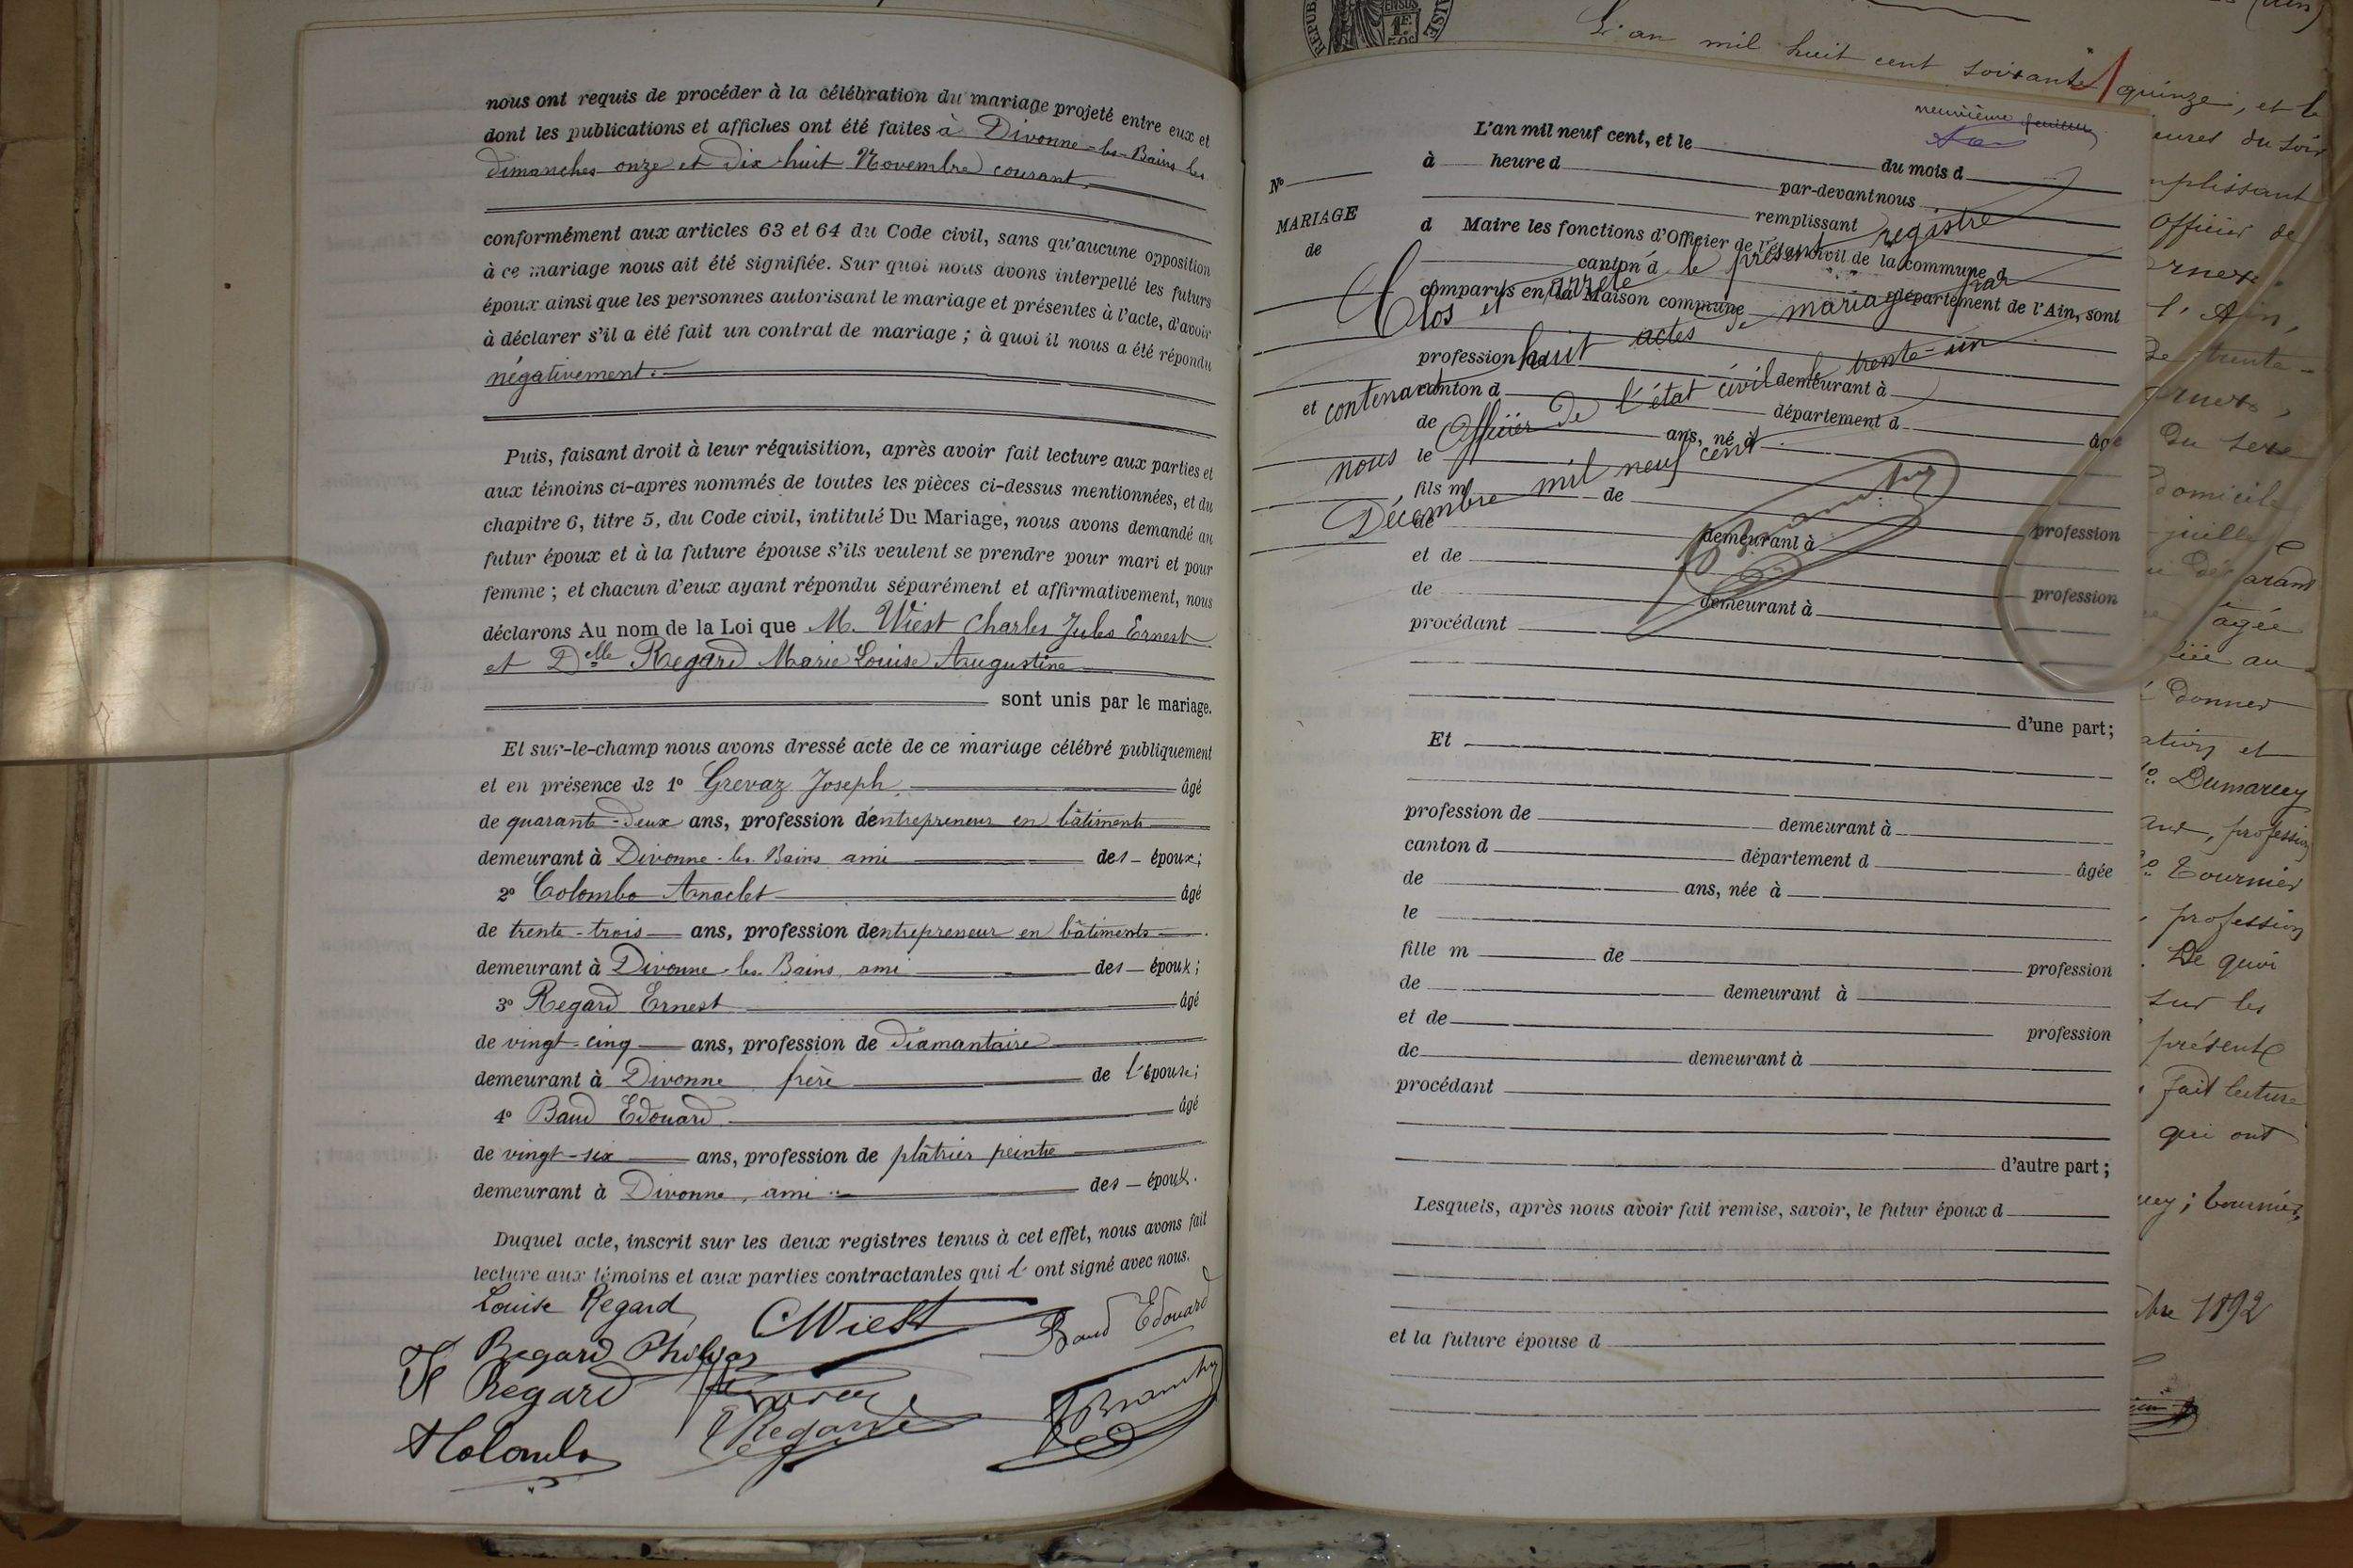 nous ont requis de procéder à la célébration du mariage projeté entre eux et
dont les publications et affiches ont été faites à Divonne-les-Bains les
dimanches onze et dix-huit Novembre courant,
conformément aux articles 63 et 64 du Code civil, sans qu'aucune opposition
à ce mariage nous ait été signifiée. Sur quoi nous avons interpellé les futurs
époux ainsi que les personnes autorisant le mariage et présentes à l'acte, d'avoir
à déclarer s'il a été fait un contrat de mariage ; à quoi il nous a été répondu
négativement.
Puis, faisant droit à leur réquisition, après avoir fait lecture aux parties et
aux témoins ci-après nommés de toutes les pièces ci-dessus mentionnées, et du
chapitre 6, titre 5, du Code civil, intitulé Du Mariage, nous avons demandé au
futur époux et à la future épouse s'ils veulent se prendre pour mari et pour
femme ; et chacun d'eux ayant répondu séparément et affirmativement, nous
déclarons Au nom de la Loi que M. Wiest Charles Jules Ernest
et Delle Regard Marie Louise Augustine
sont unis par le mariage.
Et sur-le-champ nous avons dressé acte de ce mariage célébré publiquement
et en présence de 1º Grevaz Joseph âgé
de quarante-deux ans, profession d'entrepreneur en bâtiments
demeurant à Divonne-les-Bains ami des époux ;
2º Colombo Anaclet âgé
de trente-trois ans, profession d'entrepreneur en bâtiments
demeurant à Divonne-les-Bains, ami des époux ;
3º Regard Ernest âgé
de vingt-cinq ans, profession de diamantaire
demeurant à Divonne frère de l'épouse ;
4º Baud Edouard âgé
de vingt-six ans, profession de plâtrier peintre
demeurant à Divonne, ami des époux.
Duquel acte, inscrit sur les deux registres tenus à cet effet, nous avons fait
lecture aux témoins et aux parties contractantes qui l'ont signé avec nous.
Louise Regard
CWiest
Baud Edouard
Regard
Regard
Regard
AColombo
L'an mil huit cent soixante quinze, et le
neuvième
L'an mil neuf cent, et le du mois d
à heure d par-devant nous
remplissant
d Maire les fonctions d'Officier de l'état civil de la commune d
canton d département de l'Ain, sont
comparus en la Maison commune
Nº
MARIAGE
de
Clos et arrêté le présent registre
et contenant huit actes de mariage par
nous Officier de l'état civil le trente-un
Décembre mil neuf cent
profession de demeurant à
canton d département d âgé
de ans, né à
le
fils m de profession
de demeurant à
et de profession
de demeurant à
procédant
d'une part ;
Et
profession de demeurant à
canton d département d âgée
de ans, née à
le
fille m de profession
de demeurant à
et de profession
de demeurant à
procédant
d'autre part ;
Lesquels, après nous avoir fait remise, savoir, le futur époux d
et la future épouse d
Officier de
l'Ain,
de trente-
du sexe
domicile
âgée
donner
Dumarcey
profession
Tournier
profession
De quoi
sur les
présent
fait lecture
qui ont
Tournier,
1892